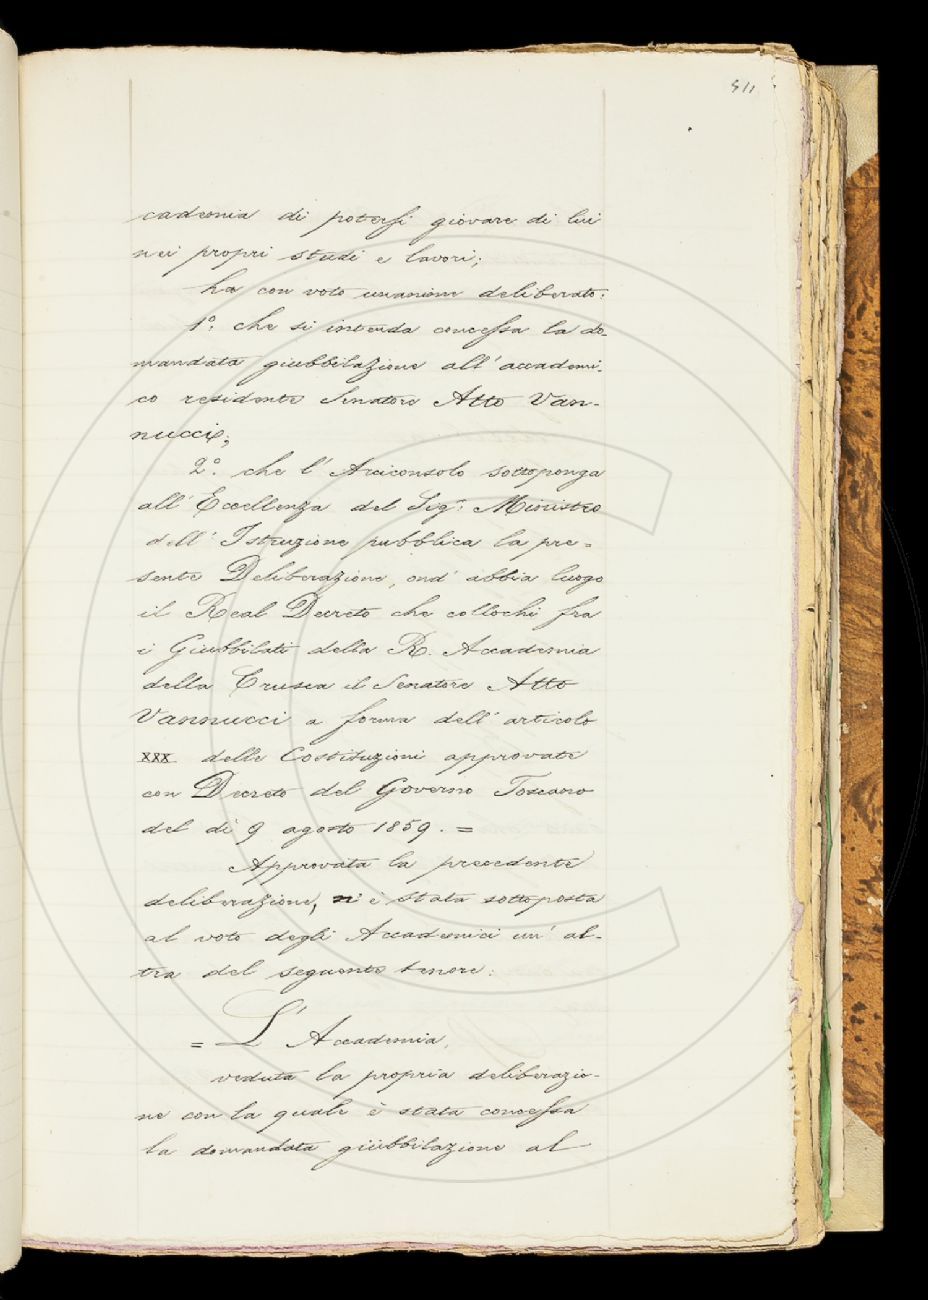 511
cademia di potersi giovare di lui
nei propri studi e lavori;
ha con voto unanime deliberato:
1º. che si intenda concessa la do-
mandata giubbilazione all' accademi-
co residente Senatore Atto Van-
nucci;
2º. che l' Arciconsolo sottoponga
all' Eccellenza del Sigr. Ministro
dell' Istruzione pubblica la pre=
sente Deliberazione, ond' abbia luogo
il Real Decreto che collochi fra
i Giubbilati della R. Accademia
della Crusca il Senatore Atto
Vannucci a forma dell' articolo
XXX delle Costituzioni approvate
con Decreto del Governo Toscano
del dì 9 agosto 1859. =
Approvata la precedente
deliberazione, ni è stata sottoposta
al voto degli Accademici un' al-
tra del seguente tenore:
= L' Accademia,
veduta la propria deliberazio-
ne con la quale è stata concessa
la domandata giubbilazione al